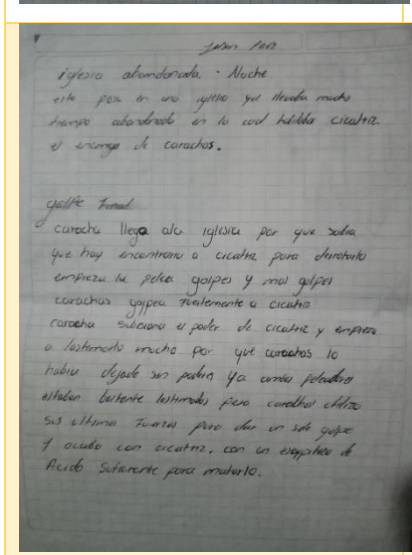 iglesia abandonada. - Noche
esto pasa en una iglesia que llevaba mucho
tiempo abandonada en la cual habitaba cicatriz
el enemigo de carachas.
golpe Final
caracha llega ala iglesia por que sabia
que hay encontraria a cicatriz para derrotarlo
empieza la pelea golpes y mas golpes
carachas golpea fuertemente a cicatriz
caracha el poder de cicatriz y empieza
a lastimarlo mucho por que carachas lo
habia dejado sin padres ya ambos peleadores
estaban bastante lastimados pero carachas utilizo
sus ultimas fuerzas para dar un solo golpe
y acabo con cicatriz, con un de
Acido suficiente para matarlo.